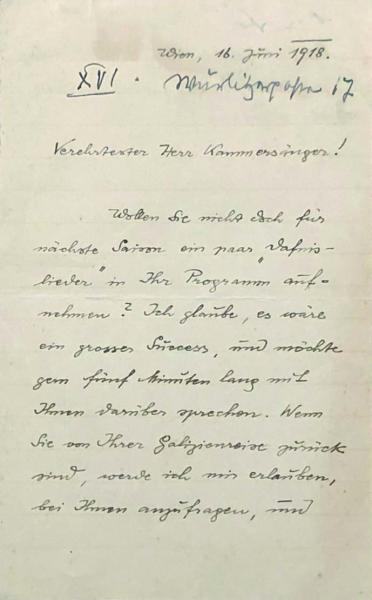 Wien, 16. Juni 1918.
XVI. Wurlitzergasse 17
Verehrtester Herr Kammersänger!
Wollen Sie nicht doch für
nächste Saison ein paar „Dafnis-
lieder" in Ihr Programm auf-
nehmen? Ich glaube, es wäre
ein grosser Success, und möchte
gern fünf Minuten lang mit
Ihnen darüber sprechen. Wenn
Sie von Ihrer Galizienreise zurück
sind, werde ich mir erlauben,
bei Ihnen anzufragen, und